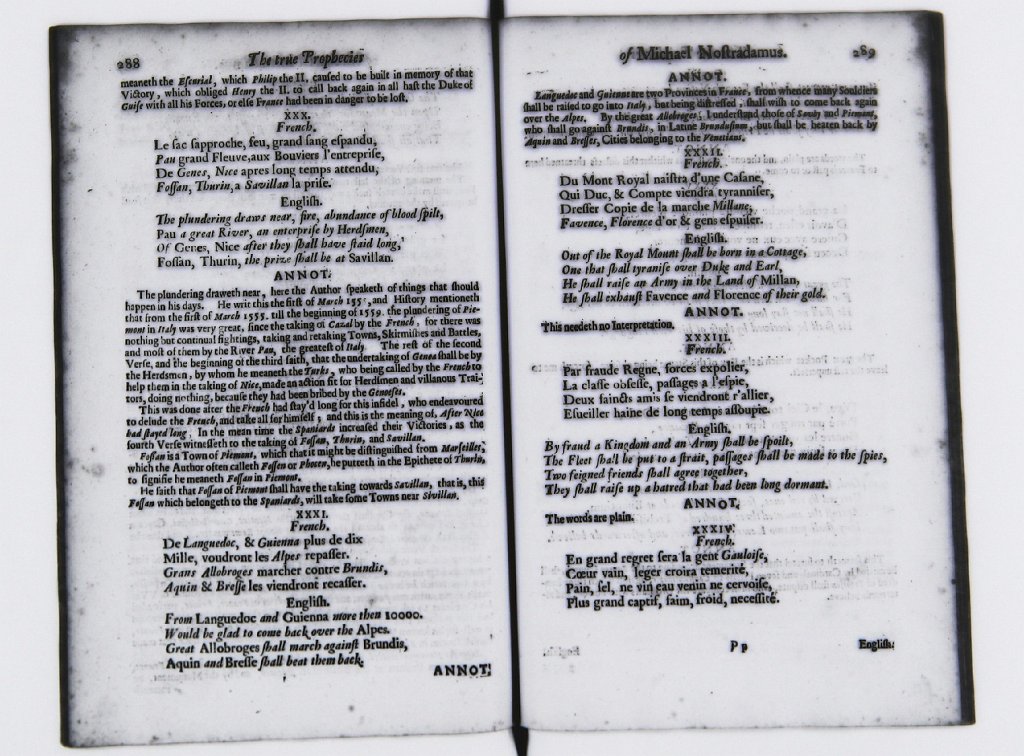 288 The true Prophecies
meaneth the Eſcurial, which Philip the II. cauſed to be built in memory of that
Victory, which obliged Henry the II. to call back again in all haſt the Duke of
Guiſe with all his Forces, or elſe France had been in danger to be loſt.
XXX.
French.
Le ſac ſapproche, feu, grand ſang eſpandu,
Pau grand Fleuve, aux Bouviers l'entrepriſe,
De Genes, Nice apres long temps attendu,
Foſſan, Thurin, a Savillan la priſe.
Engliſh.
The plundering draws near, fire, abundance of blood ſpilt,
Pau a great River, an enterpriſe by Herdſmen,
Of Genes, Nice after they ſhall have ſtaid long,
Foſſan, Thurin, the prize ſhall be at Savillan.
ANNOT.
The plundering draweth near, here the Author ſpeaketh of things that ſhould
happen in his days. He writ this the firſt of March 155, and Hiſtory mentioneth
that from the firſt of March 1555. till the beginning of 1559. the plundering of Pie-
mont in Italy was very great, ſince the taking of Cazal by the French, for there was
nothing but continual fightings, taking and retaking Towns, Skirmiſhes and Battles,
and moſt of them by the River Pau, the greateſt of Italy. The reſt of the ſecond
Verſe, and the beginning of the third ſaith, that the undertaking of Genoa ſhall be by
the Herdſmen, by whom he meaneth the Turks, who being called by the French to
help them in the taking of Nice, made an action fit for Herdſmen and villanous Trai-
tors, doing nothing, becauſe they had been bribed by the Genoeſes.
This was done after the French had ſtay'd long for this infidel, who endeavoured
to delude the French, and take all for himſelf; and this is the meaning of, After Nice
had ſtayed long. In the mean time the Spaniards increaſed their Victories, as the
fourth Verſe witneſſeth to the taking of Foſſan, Thurin, and Savillan.
Foſſan is a Town of Piemont, which that it might be diſtinguiſhed from Marſeilles,
which the Author often calleth Foſſen or Phocen, he putteth in the Epithete of Thurin,
to ſignifie he meaneth Foſſan in Piemont.
He ſaith that Foſſan of Piemont ſhall have the taking towards Savillan, that is, this
Foſſan which belongeth to the Spaniards, will take ſome Towns near Sivillan.
XXXI.
French.
De Languedoc, & Guienna plus de dix
Mille, voudront les Alpes repaſſer.
Grans Allobroges marcher contre Brundis,
Aquin & Breſſe les viendront recaſſer.
Engliſh.
From Languedoc and Guienna more then 10000.
Would be glad to come back over the Alpes.
Great Allobroges ſhall march againſt Brundis,
Aquin and Breſſe ſhall beat them back.
ANNOT.
of Michael Noſtradamus. 289
ANNOT.
Languedoc and Guienna are two Provinces in France, from whence many Souldiers
ſhall be raiſed to go into Italy, but being diſtreſſed, ſhall wiſh to come back again
over the Alpes. By the great Allobroges, I underſtand thoſe of Savoy and Piemont,
who ſhall go againſt Brundis, in Latine Brunduſium, but ſhall be beaten back by
Aquin and Breſſes, Cities belonging to the Venetians.
XXXII.
French.
Du Mont Royal naiſtra d'une Caſane,
Qui Duc, & Compte viendra tyranniſer,
Dreſſer Copie de la marche Millane,
Favence, Florence d'or & gens eſpuiſer.
Engliſh.
Out of the Royal Mount ſhall be born in a Cottage,
One that ſhall tyraniſe over Duke and Earl,
He ſhall raiſe an Army in the Land of Millan,
He ſhall exhauſt Favence and Florence of their gold.
ANNOT.
This needeth no Interpretation.
XXXIII.
French.
Par fraude Regne, forces expolier,
La claſſe obſeſſe, paſſages a l'eſpie,
Deux ſaincts amis ſe viendront r'allier,
Eſueiller haine de long temps aſſoupie.
Engliſh.
By fraud a Kingdom and an Army ſhall be ſpoilt,
The Fleet ſhall be put to a ſtrait, paſſages ſhall be made to the ſpies,
Two feigned friends ſhall agree together,
They ſhall raiſe up a hatred that had been long dormant.
ANNOT.
The words are plain.
XXXIV.
French.
En grand regret ſera la gent Gauloiſe,
Cœur vain, leger croira temerité,
Pain, ſel, ne vin eau venin ne cervoiſe,
Plus grand captif, faim, froid, neceſſité.
Pp Engliſh.